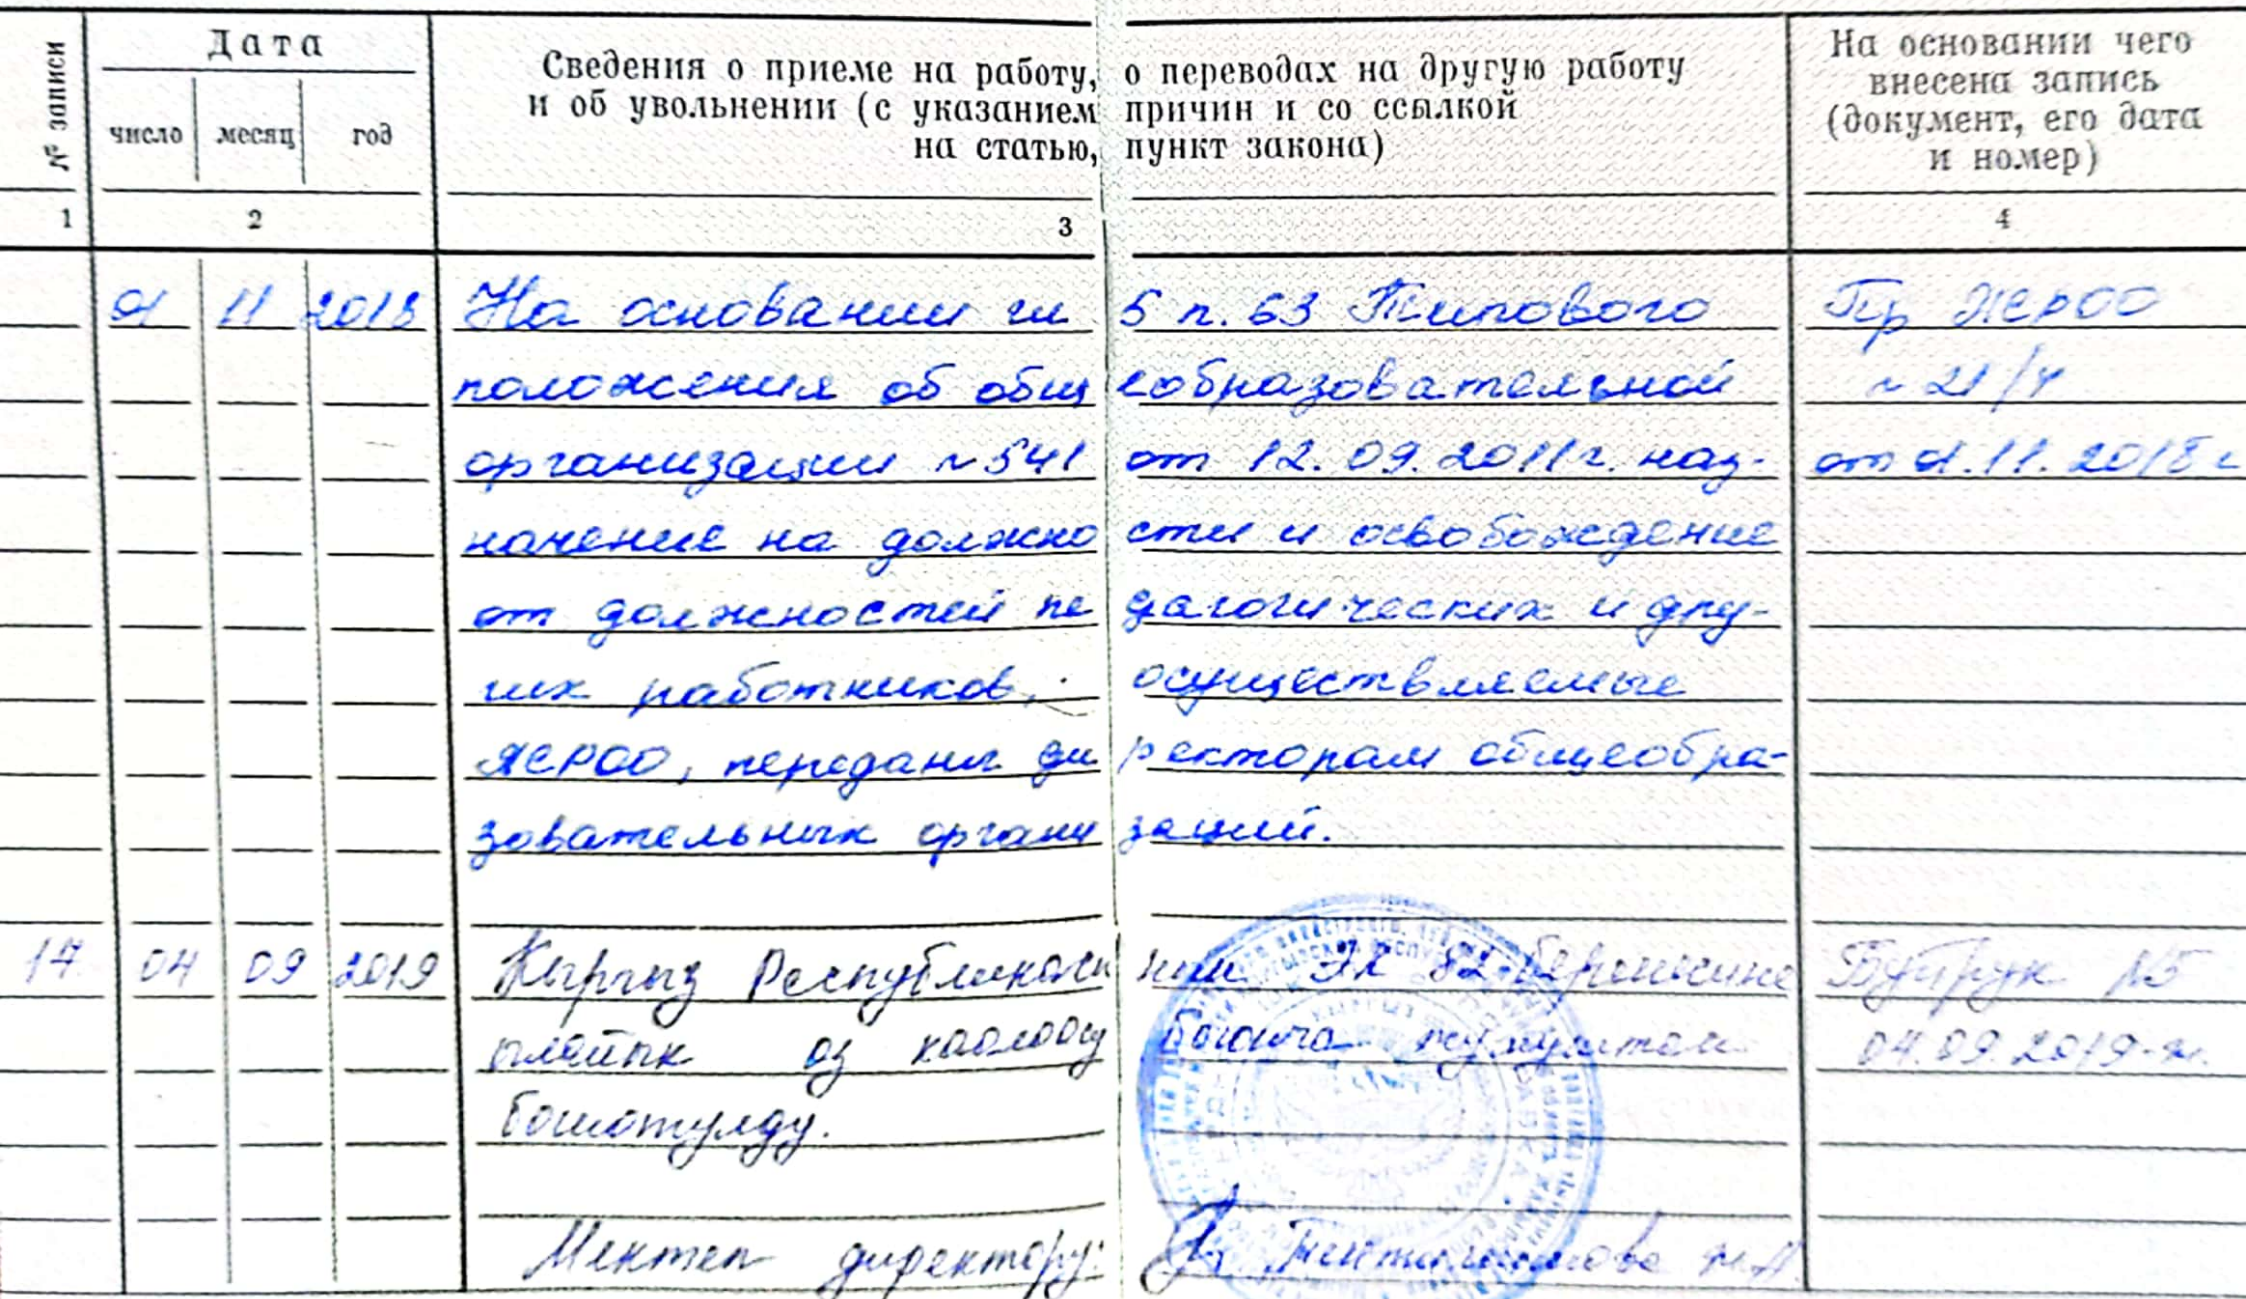 № записи
Дата
число месяц год
Сведения о приеме на работу, о переводах на другую работу
и об увольнении (с указанием причин и со ссылкой
на статью, пункт закона)
На основании чего
внесена запись
(документ, его дата
и номер)
1 2 3 4
01 11 2018 На основании гл 5 п. 63 Типового Пр ЖЕРОО
положения об общеобразовательной № 21/4
организации № 541 от 12.09.2011 г. наз- от 01.11.2018 г
начение на должности и освобождение
от должностей педагогических и дру-
гих работников, осуществляемые
ЖЕРОО, переданы директорам общеобра-
зовательных организаций.
17 04 09 2019 Кыргыз Республикасынын ЭК 82-беренесине Буйрук №5
ылайык өз каалоосу боюнча жумуштан 04.09.2019-ж.
бошотулду.
Мектеп директору: